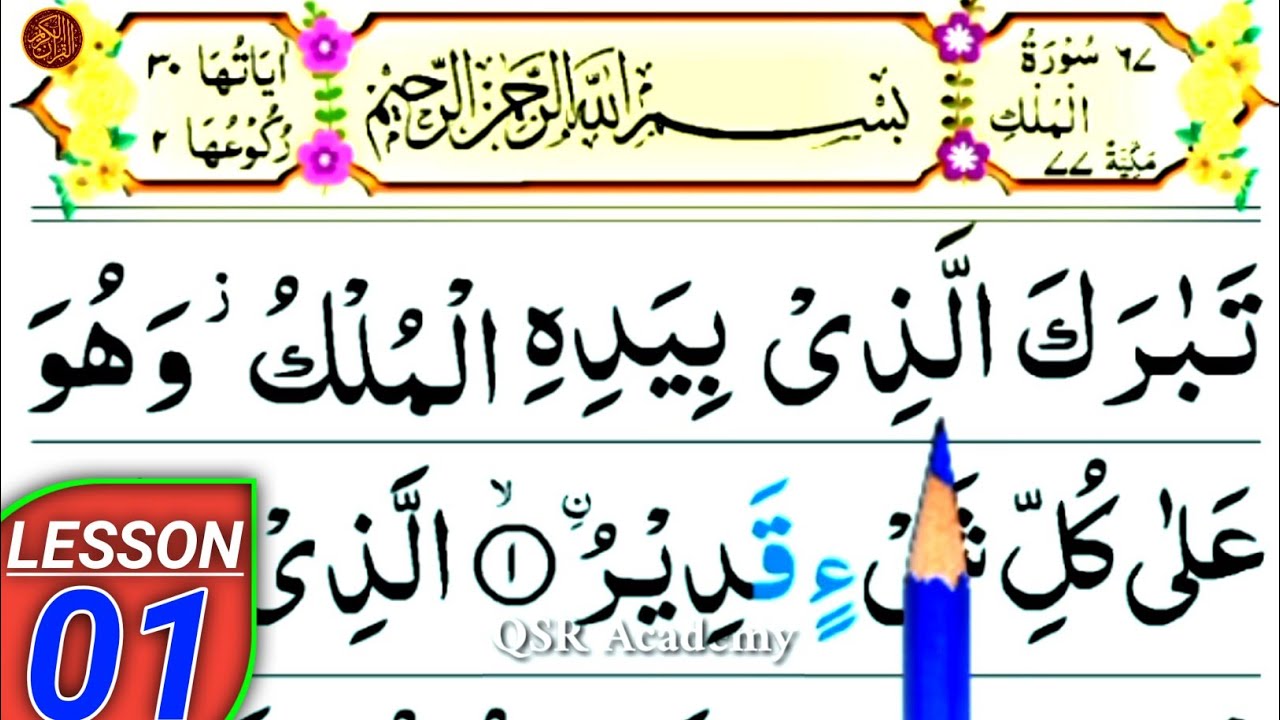 ٦٧ سُوْرَةُ
الْمُلْكِ
مَكِّيَّةٌ ٧٧
بِسْمِ اللّٰهِ الرَّحْمٰنِ الرَّحِيْمِ
اٰيَاتُهَا ٣٠
رُكُوْعُهَا ٢
تَبٰرَكَ الَّذِىْ بِيَدِهِ الْمُلْكُ ز وَهُوَ
عَلٰى كُلِّ شَىْءٍ قَدِيْرُ ۨ ۙ ١ الَّذِىْ
LESSON
01
QSR Academy